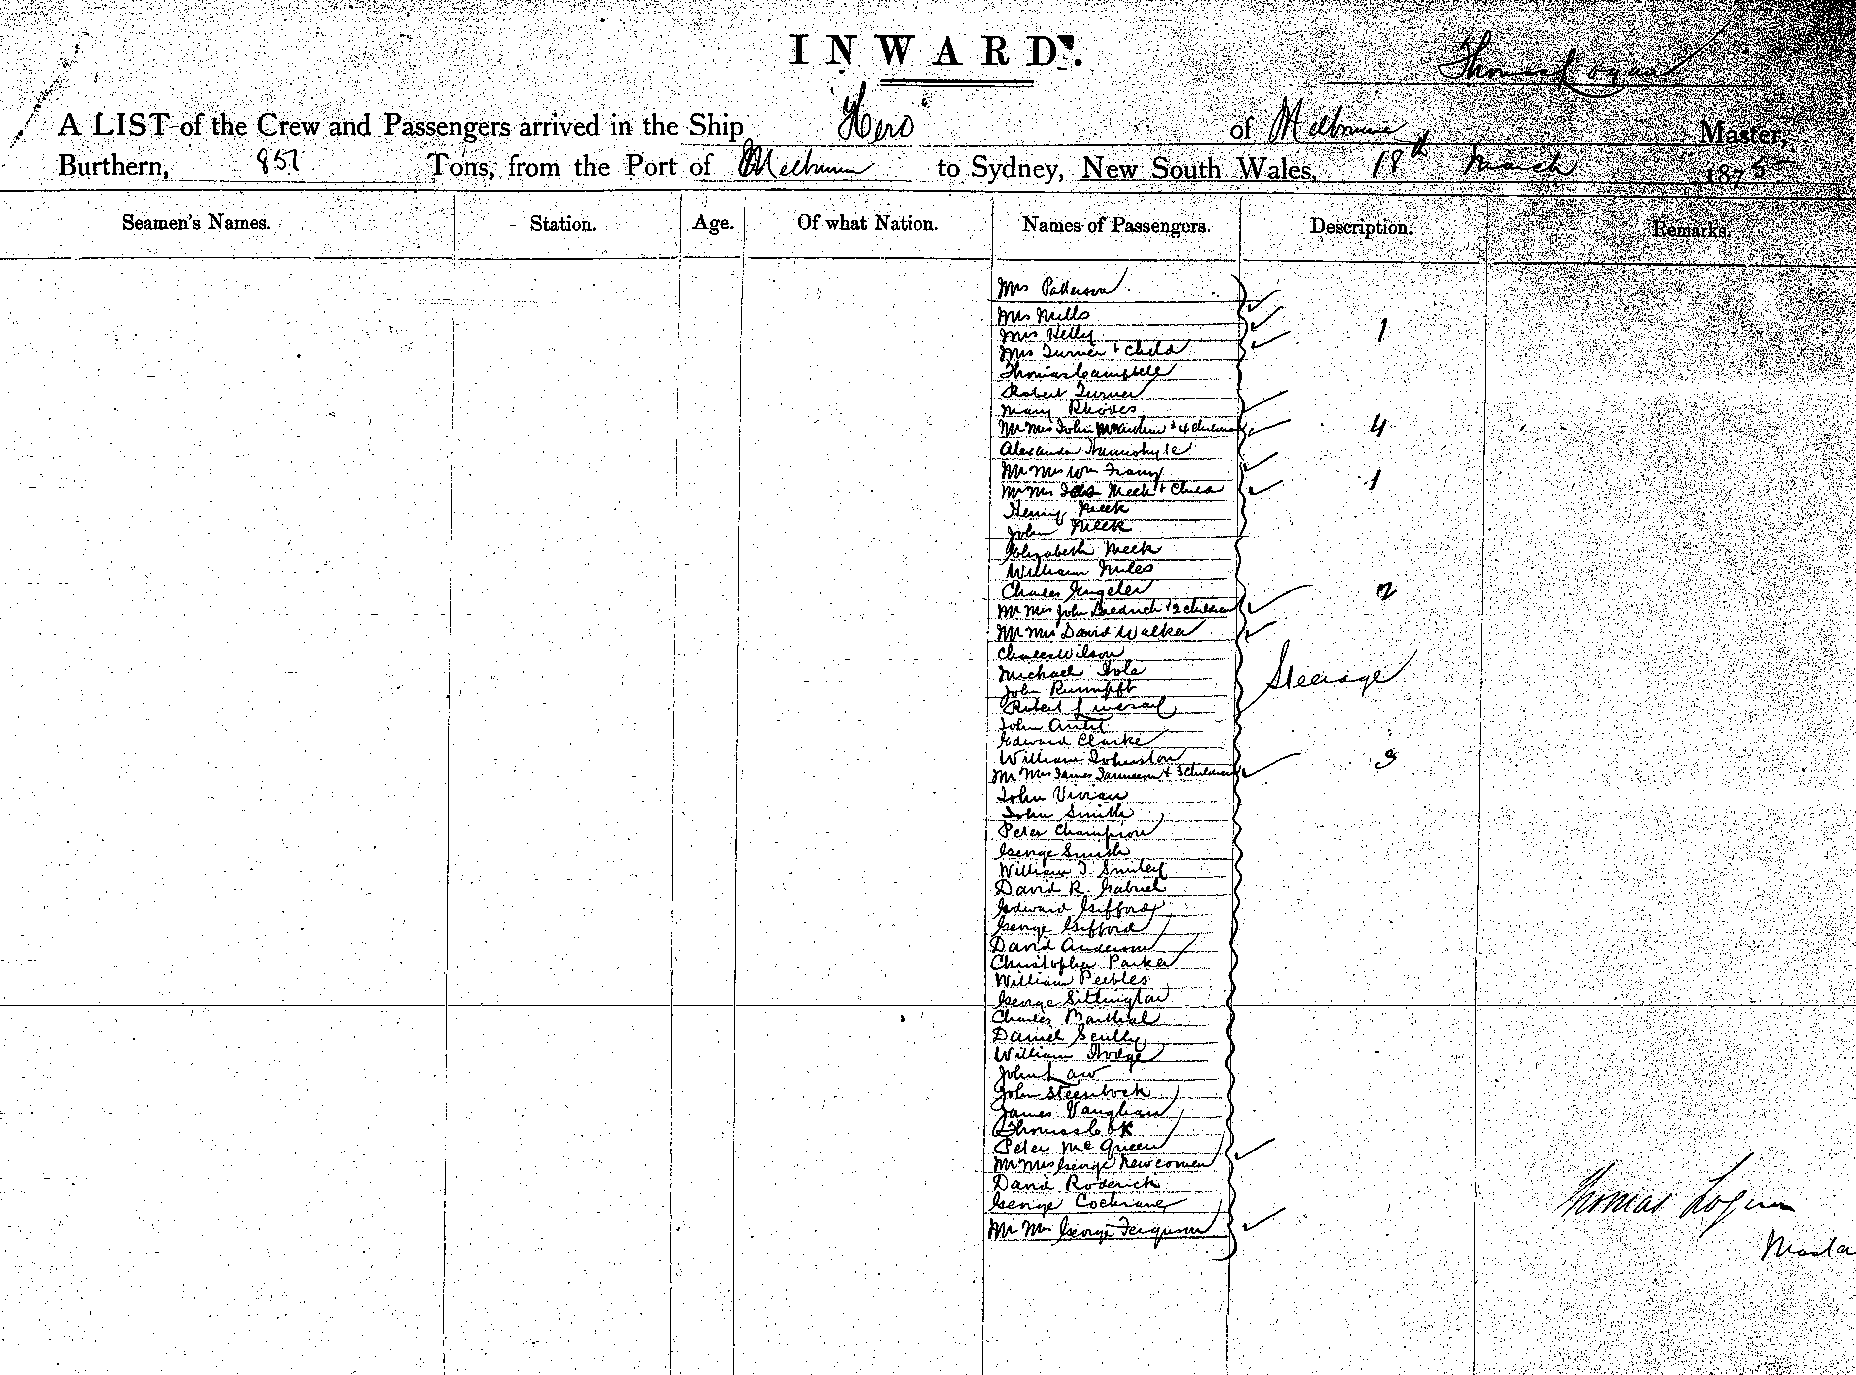 INWARD.
Thomas Logan
A LIST of the Crew and Passengers arrived in the Ship Hero of Melbourne Master,
Burthern, 857 Tons, from the Port of Melbourne to Sydney, New South Wales, 18th March 1875
Seamen's Names. Station. Age. Of what Nation. Names of Passengers. Description. Remarks.
Mrs Patterson
Mrs Mills
Mrs Kelly 1
Mrs Turner + Child
Thomas Campbell
Robert Turner
Mary Rhodes
Mr Mrs John + 4 Children 4
Alexander
Mr Mrs Wm
Mr Mrs Meek + Child 1
Henry Meek
John Meek
Elizabeth Meek
William Miles
Charles 2
Mr Mrs John + 2 Children
Mr Mrs David Walker
Charles Wilson
Michael Steerage
John
Robert
John
Edward Clarke
William Johnston 3
Mr Mrs James + 3 Children
John Vivian
John Smith
Peter Champion
George Smith
William J Smiley
David R. Gabriel
Edward Gifford
George Gifford
David Anderson
Christopher Parker
William Peebles
George Sittington
Charles
Daniel Scully
William Hodge
John Law
John Steenbock
James Vaughan
Thomas Cook
Peter McQueen
Mr Mrs George Newcomen
David Roderick
George Cochrane
Mr Mrs George Ferguson
Thomas Logan
Master